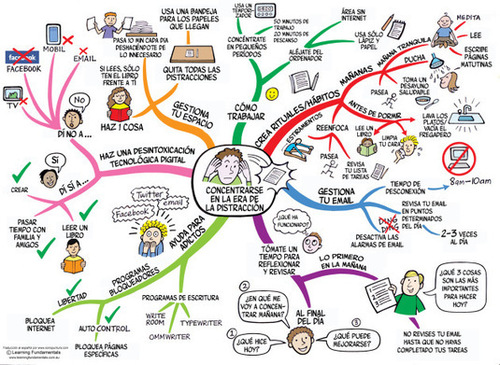 CONCENTRARSE
EN LA ERA DE
LA DISTRACCIÓN
HAZ UNA DESINTOXICACIÓN
TECNOLÓGICA DIGITAL
DI NO A...
No
MOBIL
EMAIL
facebook
FACEBOOK
TV
DÍ SÍ A...
Sí
CREAR
PASAR
TIEMPO CON
FAMILIA Y
AMIGOS
LEER UN
LIBRO
GESTIONA
TU ESPACIO
USA UNA BANDEJA
PARA LOS PAPELES
QUE LLEGAN
PASA 10 MIN CADA DÍA
DESHACIÉNDOTE DE LO
INNECESARIO
QUITA TODAS LAS
DISTRACCIONES
SI LEES, SÓLO TEN
EL LIBRO FRENTE
A TÍ
HAZ 1 COSA
CÓMO
TRABAJAR
CONCÉNTRATE EN
PEQUEÑOS
PERÍODOS
USA UN TEMPORIZADOR
50 MINUTOS DE
TRABAJO
10 MINUTOS
DE DESCANSO
ALÉJATE DEL
ORDENADOR
ÁREA SIN
INTERNET
USA SÓLO
LÁPIZ Y
PAPEL
CREA RITUALES/HÁBITOS
MAÑANAS
MAÑANA TRANQUILA
MEDITA
LEE
ESCRIBE
PÁGINAS
MATUTINAS
DUCHA
PASEA
TOMA UN
DESAYUNO
SALUDABLE
ANTES DE DORMIR
LAVA LOS
PLATOS/
VACÍA EL
FREGADERO
LIMPIA
TU CARA
LEE UN
LIBRO
REENFOCA
ESTIRAMIENTOS
PASEA
REVISA
TU LISTA
DE TAREAS
GESTIONA
TU EMAIL
TIEMPO DE
DESCONEXIÓN
8am-10am
REVISA TU EMAIL
EN PUNTOS
DETERMINADOS
DEL DÍA
2-3 VECES AL
DÍA
DING
DING
DESACTIVA LAS
ALARMAS DE EMAIL
TÓMATE UN
TIEMPO PARA
REFLEXIONAR
Y REVISAR
¿QUÉ HA
FUNCIONADO?
LO PRIMERO
EN LA MAÑANA
¿QUÉ 3 COSAS
SON LAS MÁS
IMPORTANTES
PARA HACER
HOY?
NO REVISES TU EMAIL
HASTA QUE NO HAYAS
COMPLETADO TUS TAREAS
AL FINAL
DEL DÍA
1
¿QUÉ HICE
HOY?
2
¿EN QUÉ ME
VOY A CONCENTRAR
MAÑANA?
3
¿QUÉ PUEDE
MEJORARSE?
AYUDA PARA
ADICTOS
Twitter
email
Facebook
PROGRAMAS
BLOQUEADORES
LIBERTAD
BLOQUEA
INTERNET
AUTO CONTROL
BLOQUEA PÁGINAS
ESPECÍFICAS
PROGRAMAS DE ESCRITURA
WRITE
ROOM
TYPEWRITER
OMMWRITER
© Learning Fundamentals